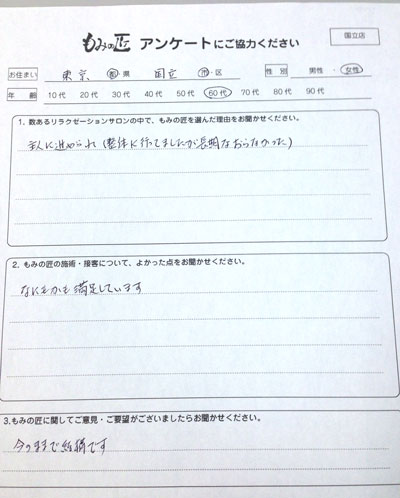 もみの匠 アンケートにご協力ください
国立店
お住まい 東京 都・県 国立 市・区 性別 男性・女性
年齢 10代 20代 30代 40代 50代 60代 70代 80代 90代
1. 数あるリラクゼーションサロンの中で、もみの匠を選んだ理由をお聞かせください。
主人に進められ(整体に行ってましたが長期なおらなかった)
2. もみの匠の施術・接客について、よかった点をお聞かせください。
なにもかも満足しています
3.もみの匠に関してご意見・ご要望がございましたらお聞かせください。
今のままで結構です